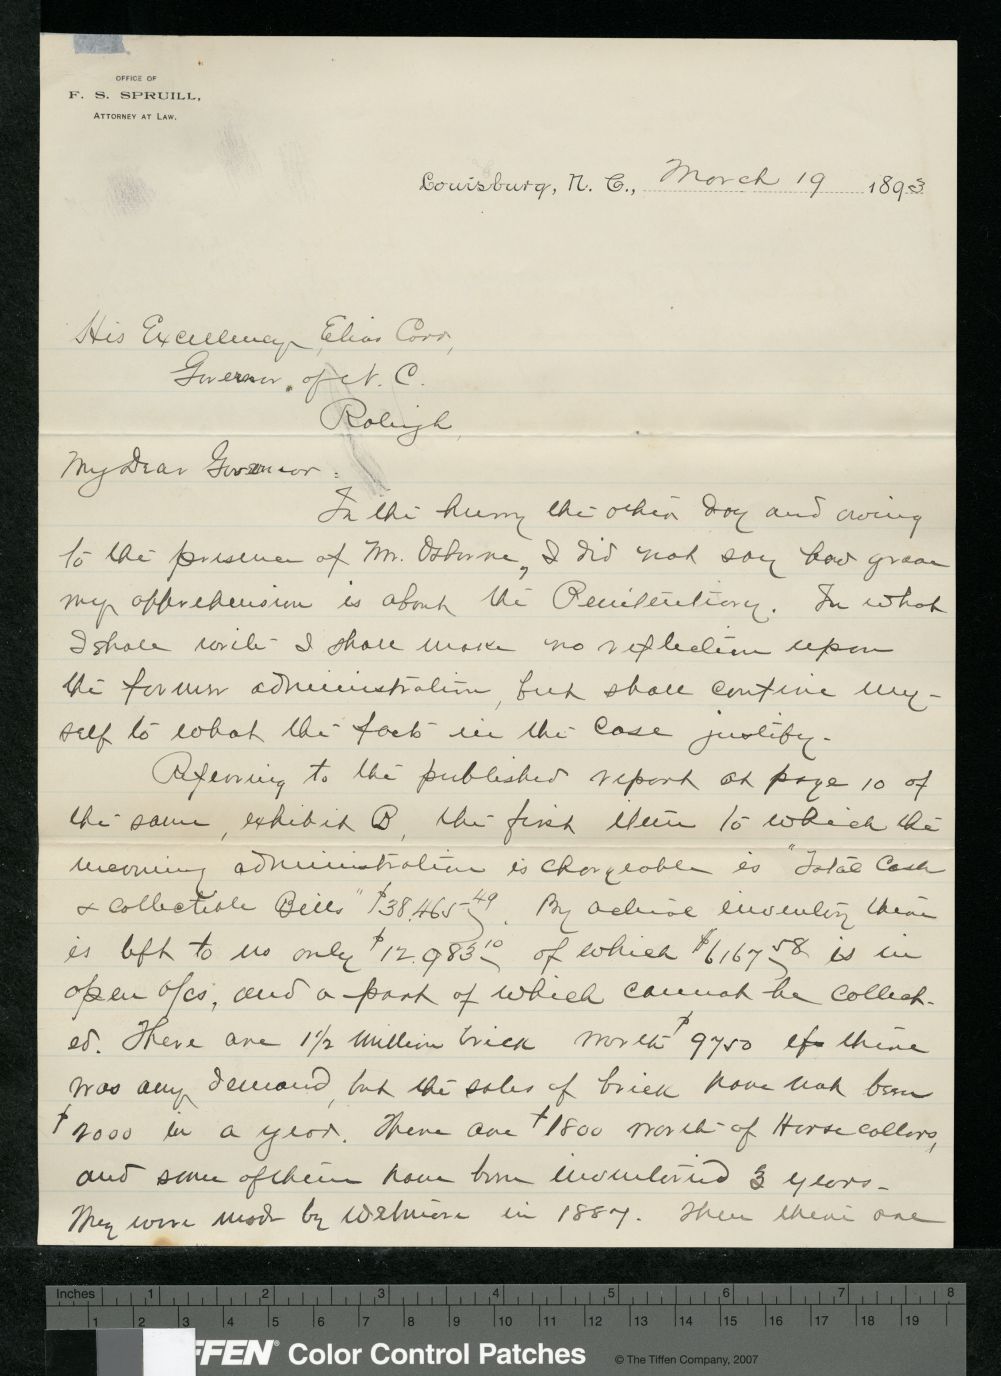 OFFICE OF
F. S. SPRUILL,
ATTORNEY AT LAW.
Louisburg, N. C., March 19 1893
His Excellency, Elias Carr,
Governor of N. C.
Raleigh,
My Dear Governor:
In the hurry the other day and owing
to the presence of Mr. Osborne, I did not say how grave
my apprehension is about the Penitentiary. In what
I shall write I shall make no reflection upon
the former administration, but shall confine my-
self to what the facts in the case justify.
Referring to the published report at page 10 of
the same, exhibit B, the first item to which the
incoming administration is chargeable is "Total Cash
& collectible Bills" $38,465 49. By actual inventory there
is left to us only $12,983 10 of which $6,167 58 is in
open a/cs, and a part of which cannot be collect-
ed. There are 1 1/2 million brick worth $9750 if there
was any demand, but the sales of brick have not been
$2000 in a year. There are $1800 worth of Horse collars,
and some of them have been inventoried 3 years-
They were made by Wetmore in 1887. Then there are
Inches 1 2 3 4 5 6 7 8
1 2 3 4 5 6 7 8 9 10 11 12 13 14 15 16 17 18 19
FFEN® Color Control Patches © The Tiffen Company, 2007